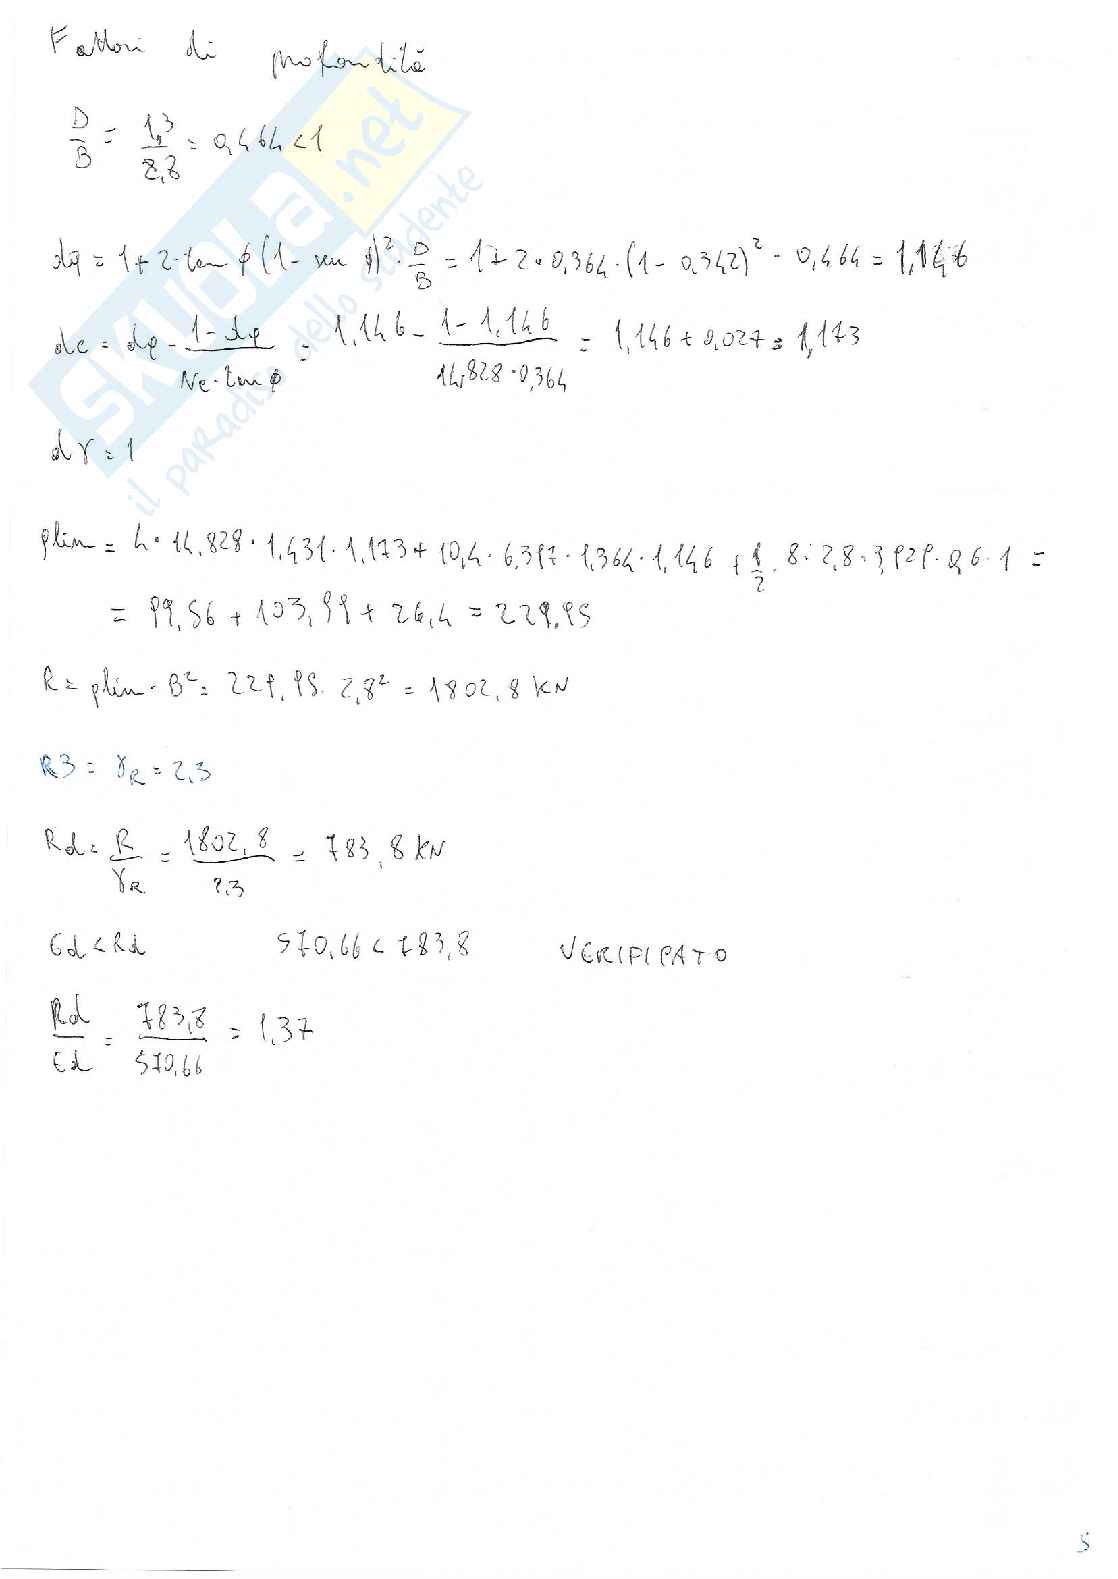 Fattori di profondità
D/B = 1,3/2,8 = 0,464 < 1
dq = 1 + 2 · tan φ (1 - sen φ)² · D/B = 1 + 2 · 0,364 · (1 - 0,342)² · 0,464 = 1,146
dc = dq - (1 - dq)/(Nc · tan φ) = 1,146 - (1 - 1,146)/(14,828 · 0,364) = 1,146 + 0,027 = 1,173
dγ = 1
plim = 4 · 14,828 · 1,431 · 1,173 + 10,4 · 6,397 · 1,364 · 1,146 + 1/2 · 8 · 2,8 · 3,929 · 0,6 · 1 =
= 99,56 + 103,99 + 26,4 = 229,95
R = plim · B² = 229,95 · 2,8² = 1802,8 KN
R3 = γR = 2,3
Rd = R/γR = 1802,8/2,3 = 783,8 KN
Ed < Rd 570,66 < 783,8 VERIFICATO
Rd/Ed = 783,8/570,66 = 1,37
SKUOLA.net
il paradiso dello studente
5